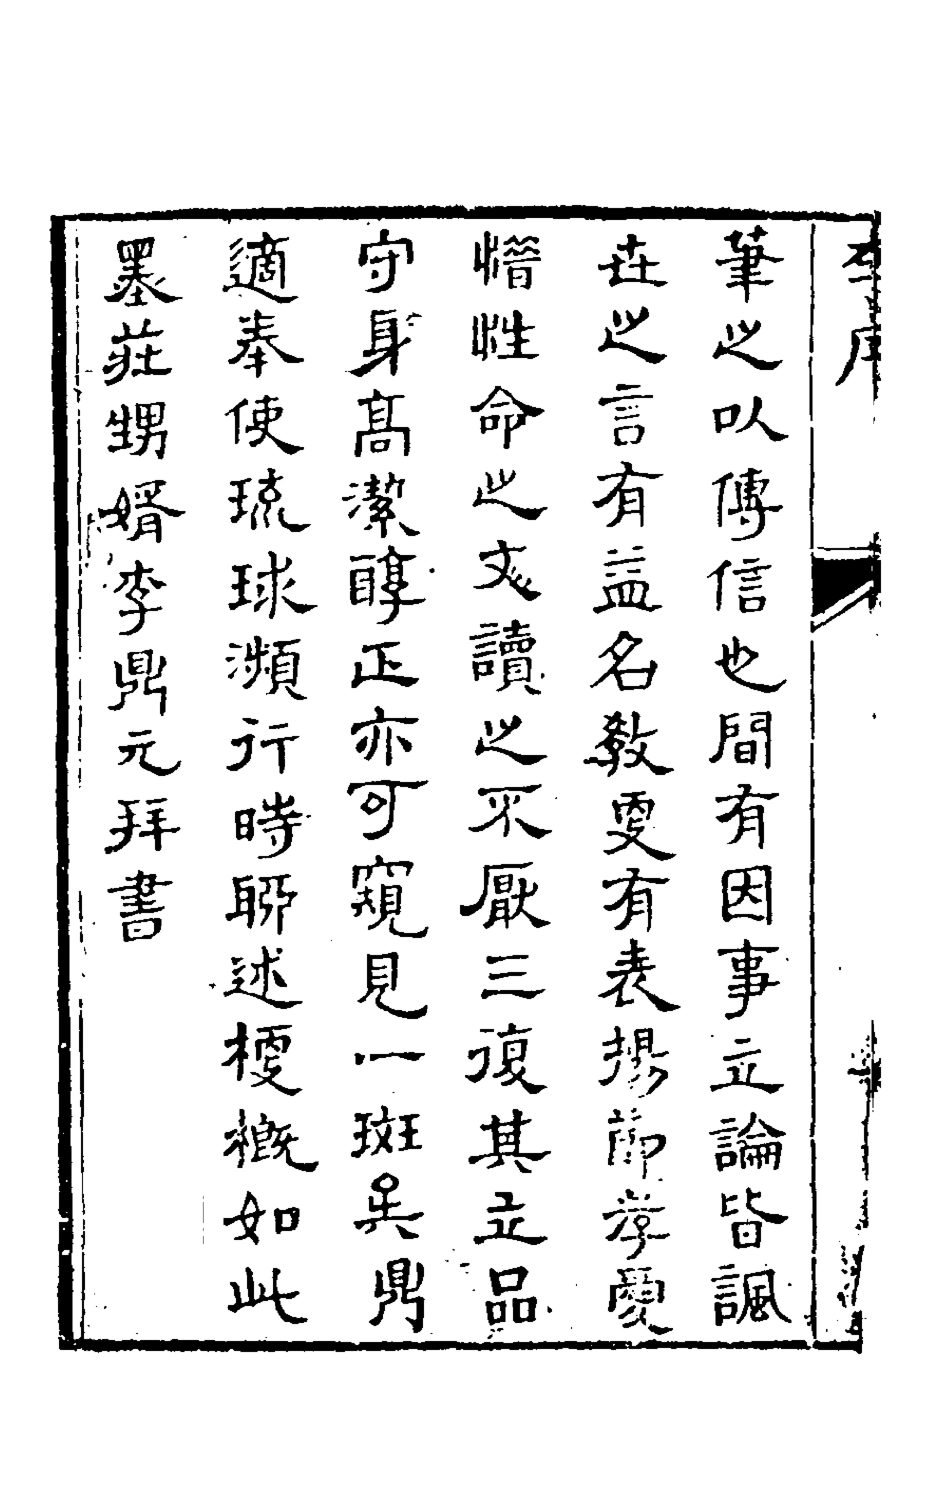 序
筆之以傳信也間有因事立論皆諷
世之言有益名教更有表揚節孝愛
惜性命之文讀之不厭三復其立品
守身髙潔醇正亦可窺見一斑矣鼎
適奉使琉球瀕行時聊述梗概如此
墨莊甥婿李鼎元拜書